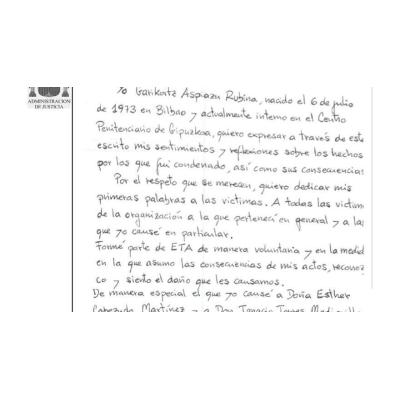 ADMINISTRACION
DE JUSTICIA
Yo Garikoitz Aspiazu Rubina, nacido el 6 de julio
de 1973 en Bilbao y actualmente interno en el Centro
Penitenciario de Gipuzkoa, quiero expresar a través de este
escrito mis sentimientos y reflexiones sobre los hechos
por los que fui condenado, así como sus consecuencias
Por el respeto que se merecen, quiero dedicar mis
primeras palabras a las victimas. A todas las victim
de la organización a la que pertenecí en general y a la
que yo causé en particular.
Formé parte de ETA de manera voluntaria y en la medid
en la que asumo las consecuencias de mis actos, reconoz
co y siento el daño que les causamos.
De manera especial el que yo causé a Doña Esther
Cabezudo Martínez y a Don Ignacio Torres